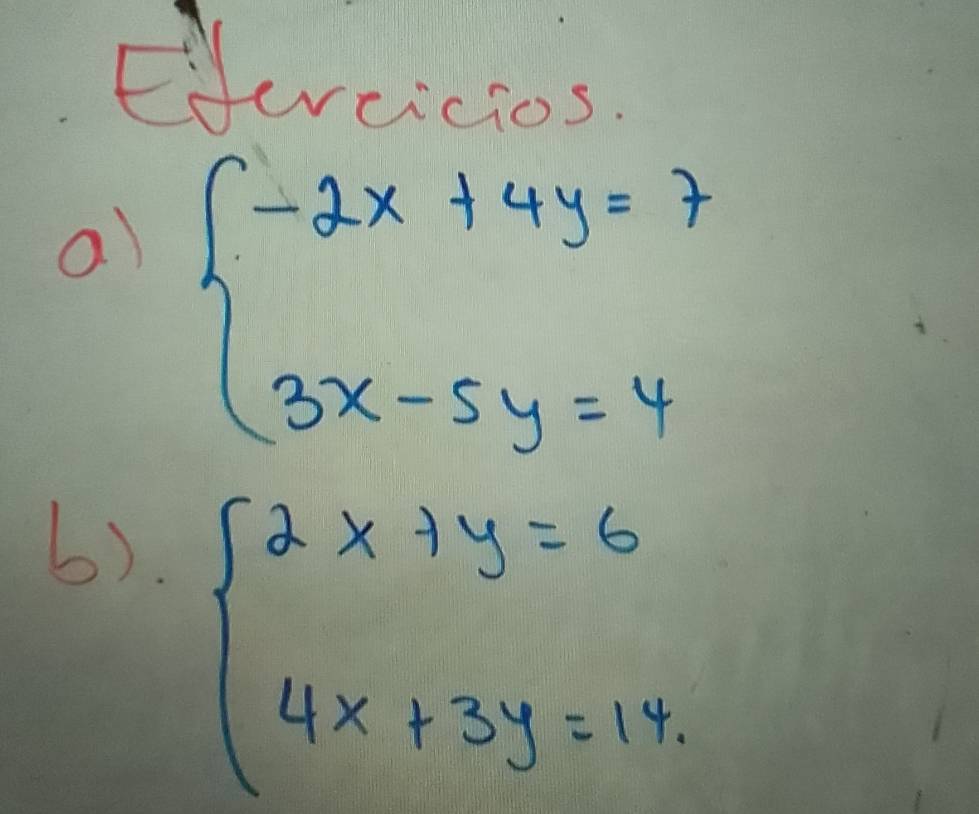 Ejercicios.
a) { -2x + 4y = 7
3x - 5y = 4
b). { 2x + y = 6
4x + 3y = 14.